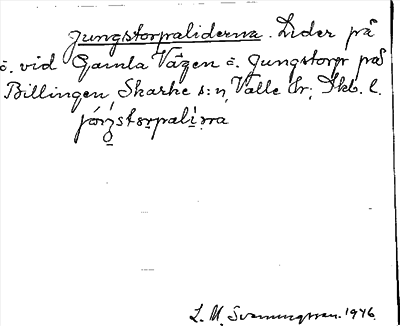 Jungstorpaliderna. Lider på
ö. vid Gamla Vägen ö. Jungstorp på
Billingen Skarke s:n, Valle hr; Skb. l.
L. M. Svenungsson. 1946.